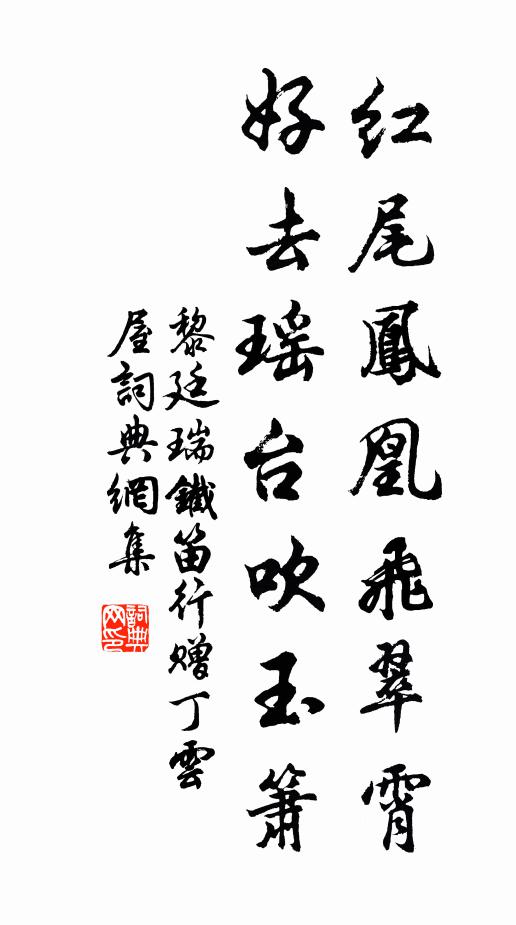 红尾鳳凰飛翠霄
好去瑶台吹玉簫
黎廷瑞鐵笛行赠丁雲
屋詞典網集
詞典网印